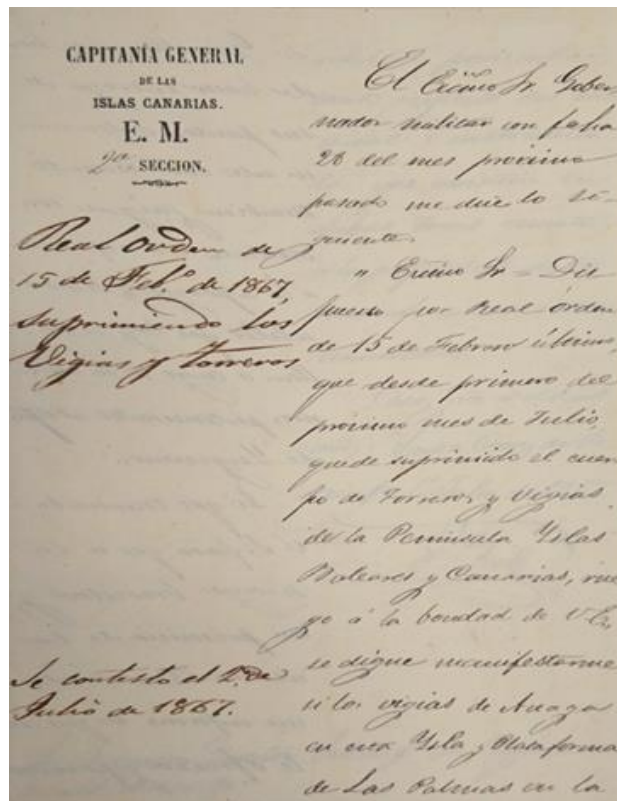 CAPITANÍA GENERAL
DE LAS
ISLAS CANARIAS.
E. M.
2ª SECCION.
Real Orden de
15 de Feb.º de 1867,
suprimiendo los
Vigias y Torreros
Se contestó el 2 de
Julio de 1867.
El Excmo Sr. Gober
nador militar con fecha
28 del mes proximo
pasado me dice lo si-
guiente.
" Excmo Sr = Dis
puesto por Real órden
de 15 de Febrero último,
que desde primero del
próximo mes de Julio,
quede suprimido el cuer
po de Torreros y Vigias
de la Peninsula Yslas
Baleares y Canarias, rue
go á la bondad de V. E.,
se digne manifestarme
si los vigias de Anaga
en esta Ysla y Plataforma
de Las Palmas en la